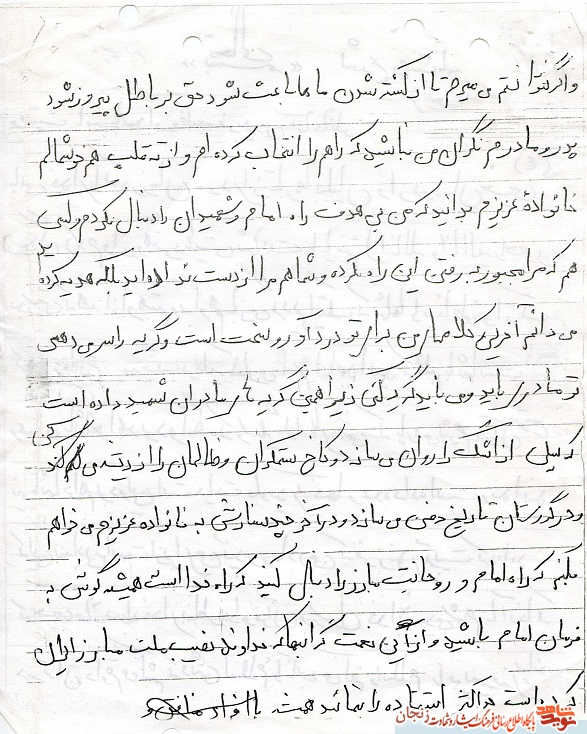 و اگر نتوانستم می میرم تا از کشته شدن ما ها باعث شود حق بر باطل پیروز شود
پدر و مادرم نگران من نباشید که راهم را انتخاب کرده ام و از ته قلب هم خوشحالم
خانوادهٔ عزیزم بدانید که من بی هدف راه امام و شهیدان را دنبال نکردم و کسی
هم که مرا مجبور به رفتن این راه نکرده و شما هم مرا از دست نداده اید بلکه هدیه کرده اید
می دانم آخرین کلامهای من برای تو دردآور و سخت است و گریه را سر می دهی
تو مادر باید و می باید گریه کنی زیرا همین گریه های مادران شهید داده است
که سیلی از اشک را روان می سازد و کاخ ستمگران و ظالمان را از ریشه می کند
و در گورستان تاریخ دفن می سازد و در آخر چند سفارشی به خانواده عزیزم می خواهم
بکنم که راه امام و روحانیت مبارز را دنبال کنید که راه خدا است همیشه گوش به
فرمان امام باشید و از این نعمت گرانبها که خداوند نصیب ملت مبارز ایران
کرده است حداکثر استفاده را بنمائید همیشه با
نوید شاهد
پایگاه اطلاع رسانی فرهنگ ایثار و شهادت زنجان